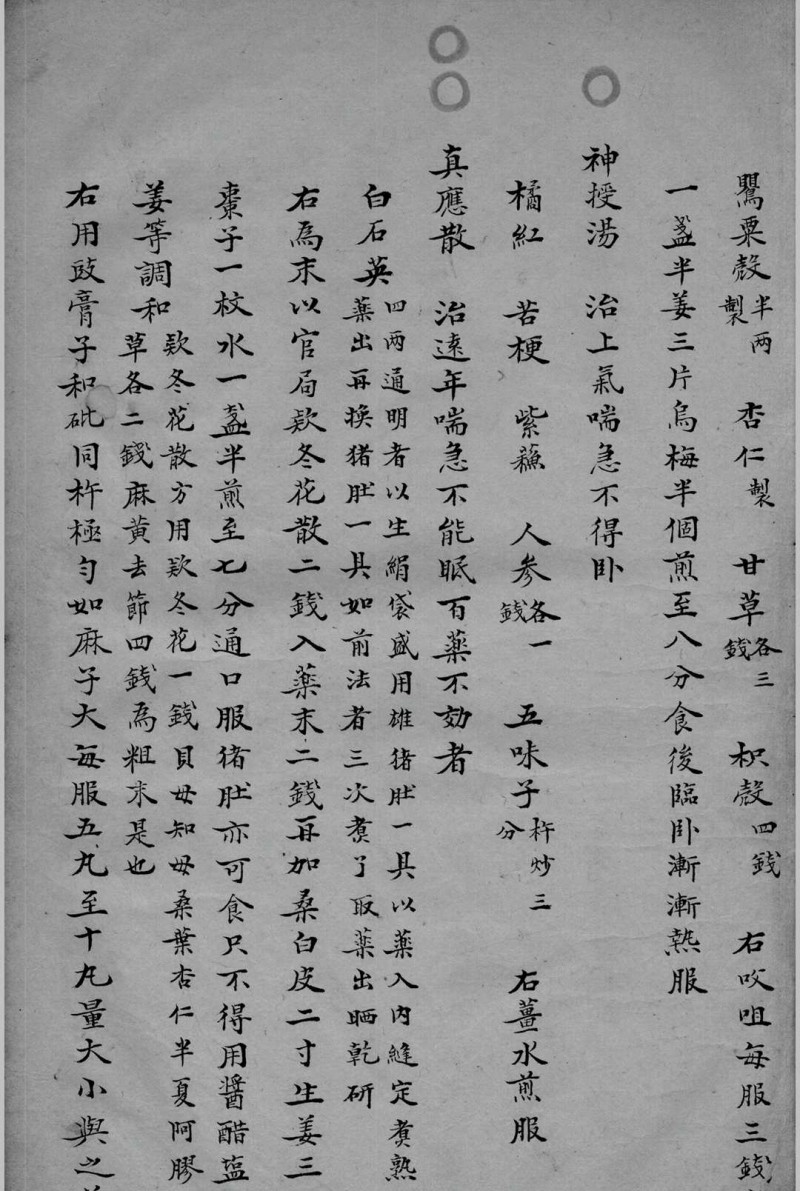 罌粟殼半兩製 杏仁製 甘草各三錢 枳殼四錢 右㕮咀每服三錢
一盞半姜三片烏梅半個煎至八分食後臨卧漸漸熱服
神授湯 治上氣喘急不得卧
橘紅 苦梗 紫蘓 人參各一錢 五味子杵炒三分 右薑水煎服
真應散 治遠年喘急不能眠百薬不効者
白石英四兩通明者以生絹袋盛用雄猪肚一具以薬入內縫定煑熟薬出再换猪肚一具如前法者三次煑了取薬出晒乾研
右為末以官局欵冬花散二錢入薬末二錢再加桑白皮二寸生姜三
棗子一枚水一盞半煎至七分通口服猪肚亦可食只不得用醬醋塩
姜等調和欵冬花散方用欵冬花一錢貝母知母桑葉杏仁半夏阿膠草各二錢麻黃去節四錢為粗末是也
右用豉膏子和砒同杵極勻如麻子大每服五丸至十丸量大小與之